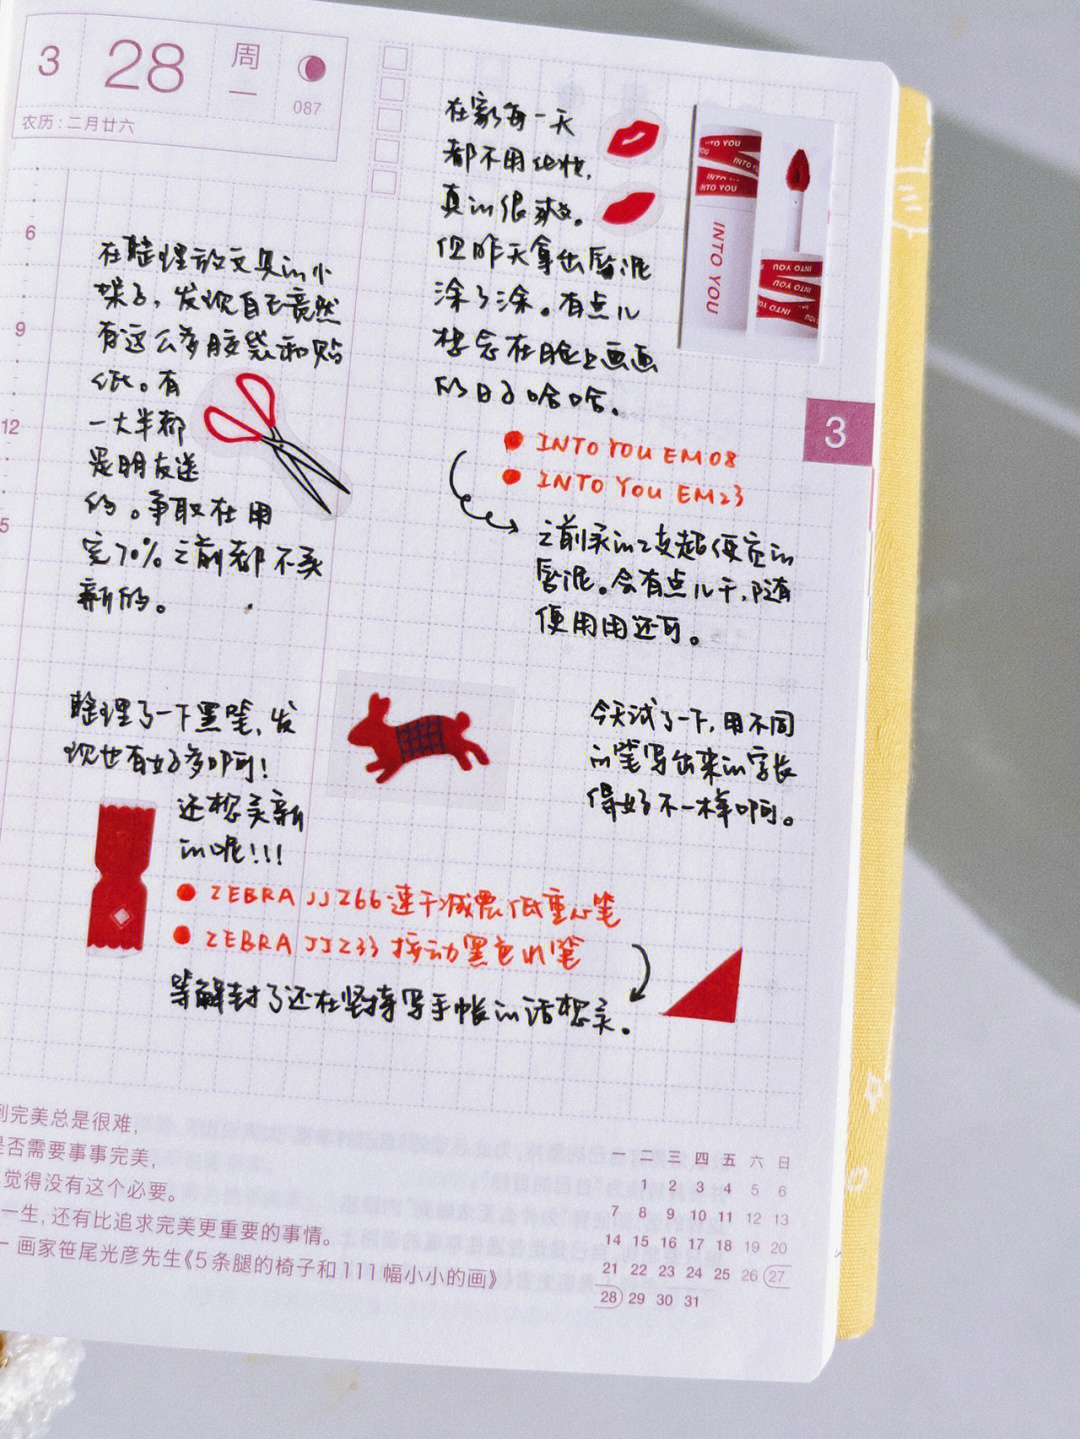 3 28 周一 087
农历：二月廿六
6
9
12
5
在整理放文具的小
架子，发现自己竟然
有这么多胶袋和贴
纸。有
一大半都
是朋友送
的。争取在用
完70%之前都不买
新的。
在家每一天
都不用化妆，
真的很爽。
但昨天拿出唇泥
涂了涂。有点儿
想念在脸上画画
的日子哈哈。
INTO YOU
INTO YOU
INTO YOU
INTO YOU
INTO YOU
INTO YOU
INTO YOU
INTO YOU
INTO YOU EM08
INTO YOU EM23
之前买的2支超便宜的
唇泥。会有点儿干，随
便用用还可。
3
整理了一下黑笔，发
现也有好多啊！
还想买新
的呢！！！
今天试了一下，用不同
的笔写出来的字长
得好不一样啊。
ZEBRA JJZ66 速干减震低重心笔
ZEBRA JJZ33 按动黑色水笔
等解封了还在坚持写手帐的话想买。
到完美总是很难，
是否需要事事完美，
觉得没有这个必要。
一生，还有比追求完美更重要的事情。
— 画家笹尾光彦先生《5条腿的椅子和111幅小小的画》
一 二 三 四 五 六 日
1 2 3 4 5 6
7 8 9 10 11 12 13
14 15 16 17 18 19 20
21 22 23 24 25 26 27
28 29 30 31